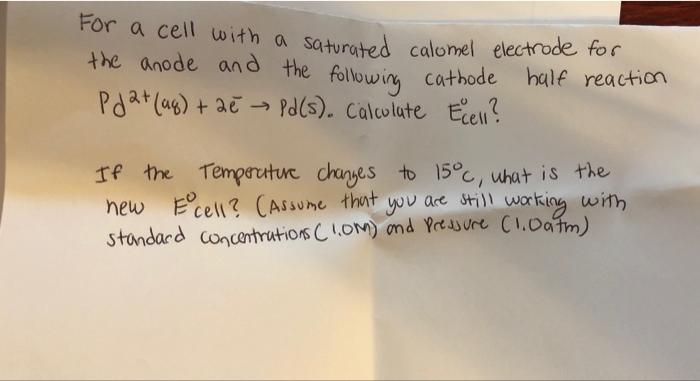 For a cell with a saturated calomel electrode for
the anode and the following cathode half reaction
Pd²⁺(aq) + 2ē → Pd(s). Calculate E°cell?
If the Temperature changes to 15°C, what is the
new E°cell? (Assume that you are still working with
standard concentrations (1.0M) and Pressure (1.0atm)